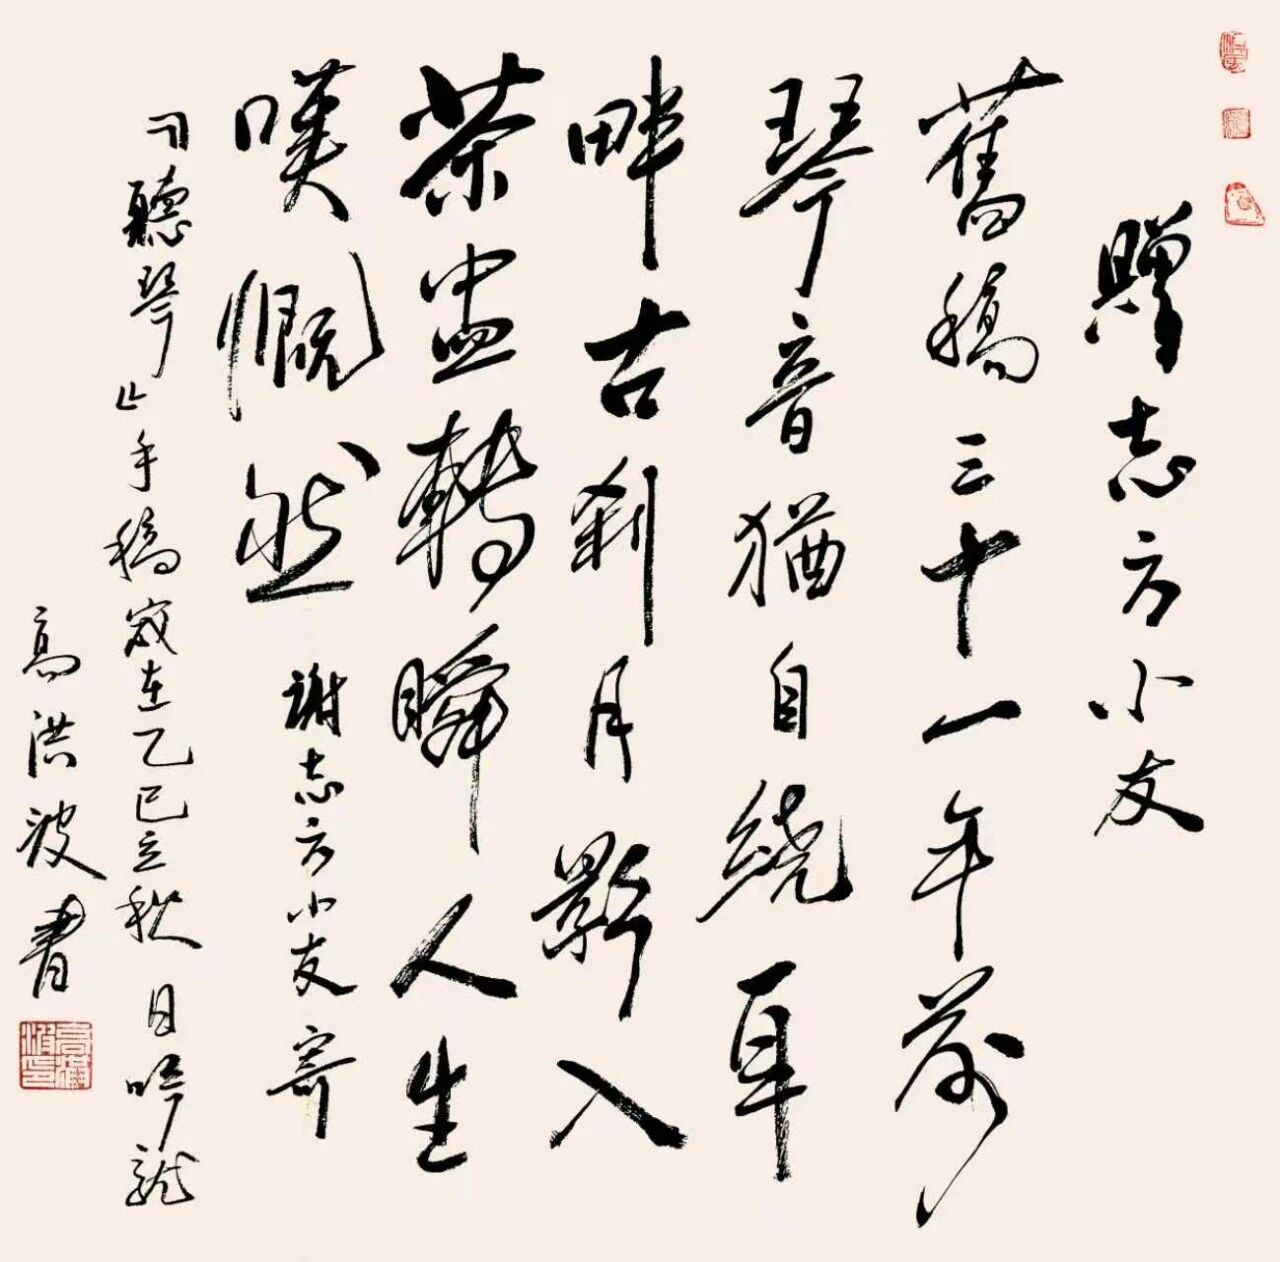 贈志方小友
舊稿三十一年前
琴音猶自繞耳
畔古刹月影入
茶盅轉瞬人生
嘆慨然 謝志方小友寄
『聽琴』手稿 歲在乙巳立秋日 吟龍
高洪波書